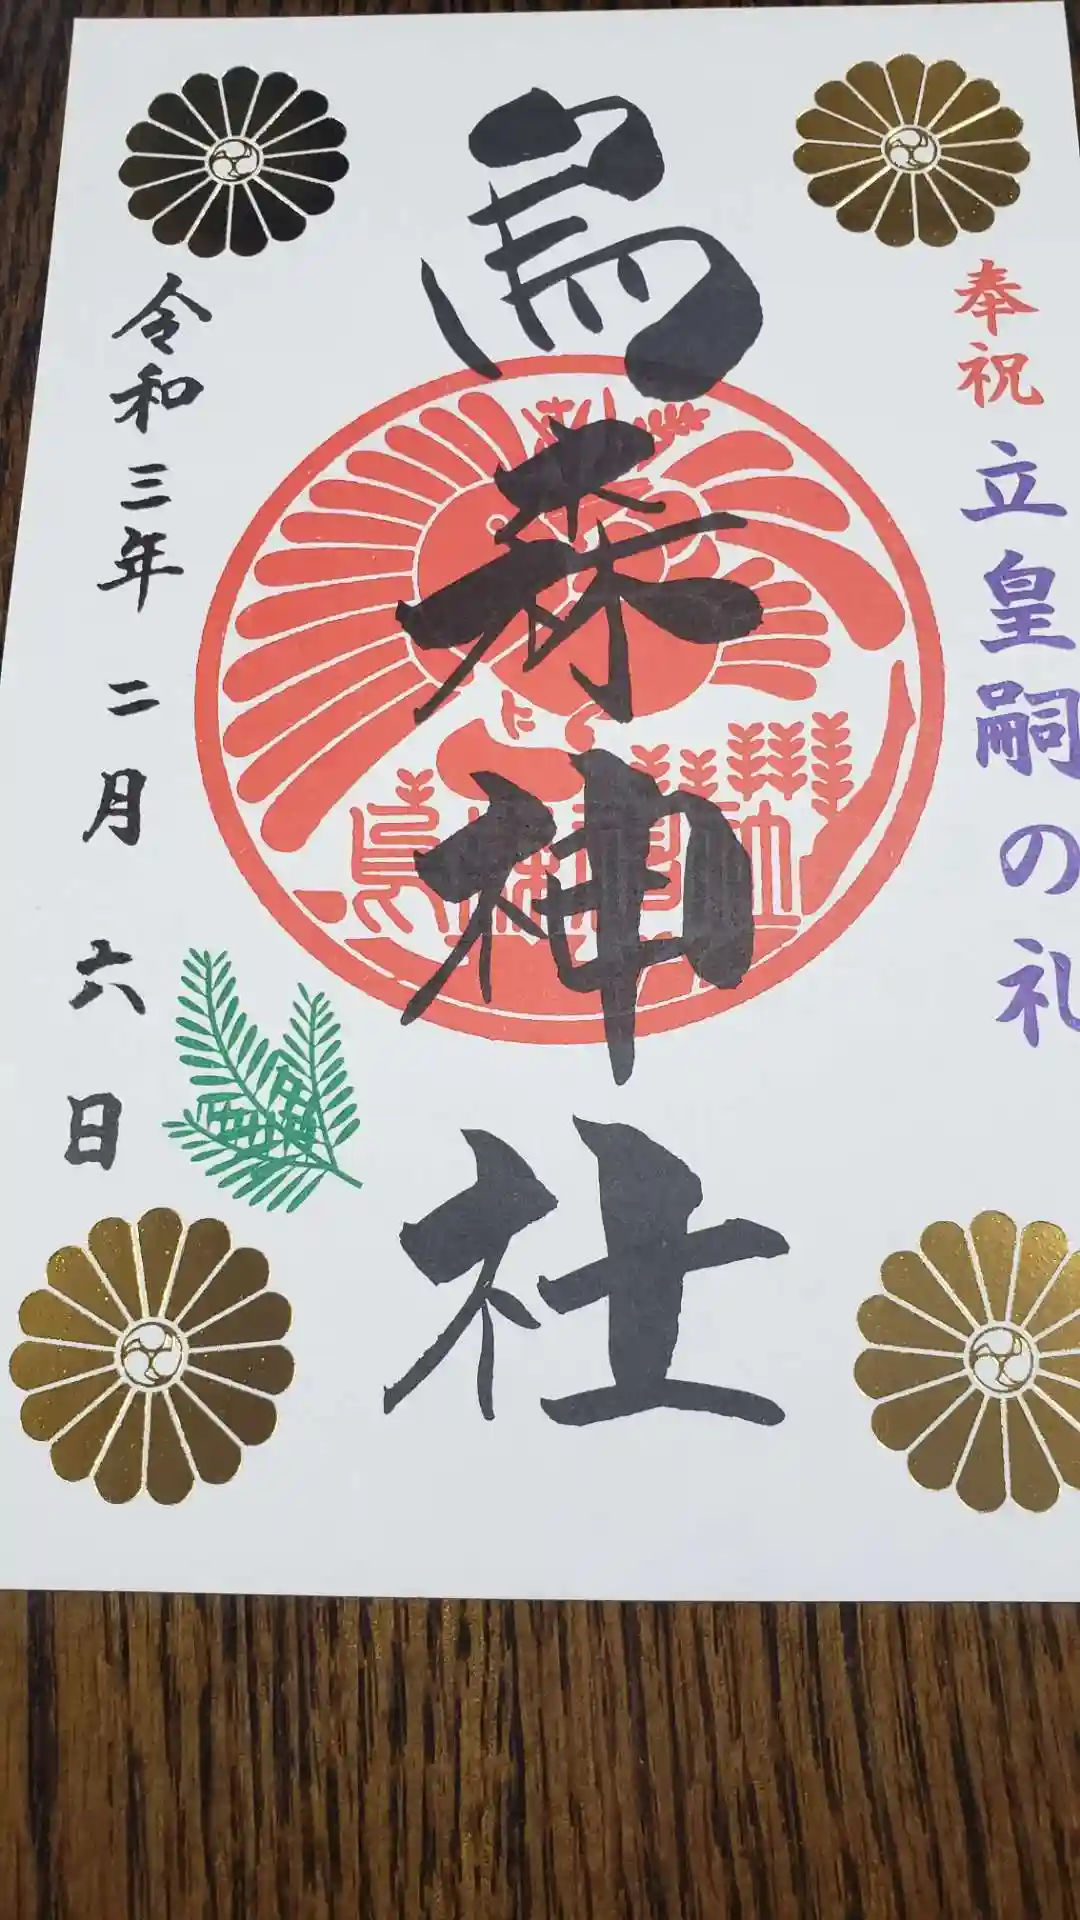 奉祝 立皇嗣の礼
烏森神社
令和三年 二月 六日